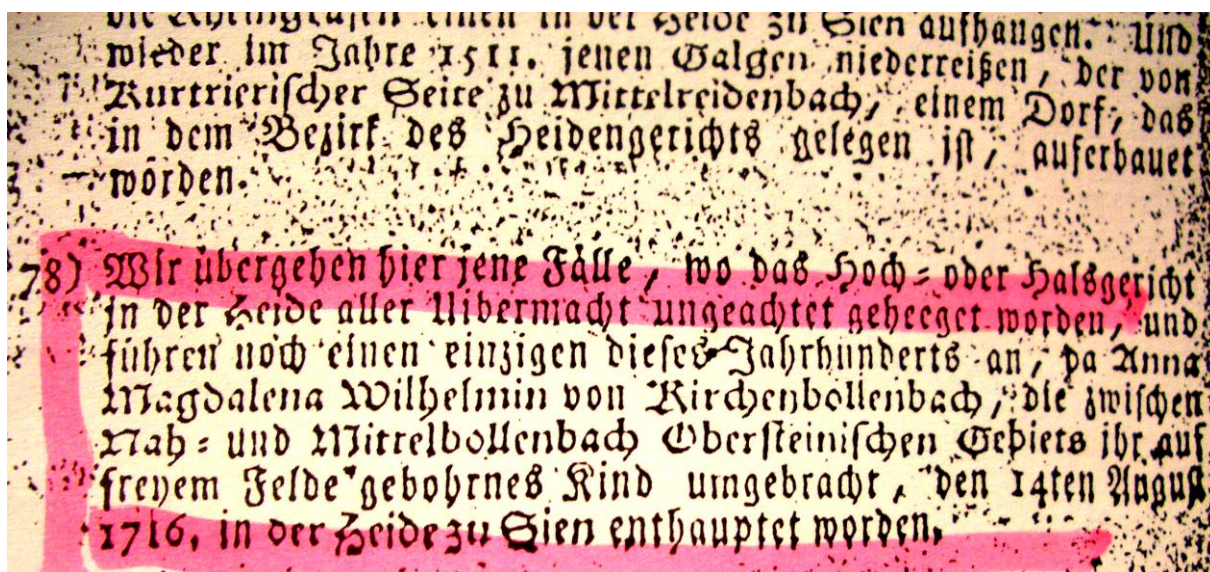 die Rheingrafen einen in der Heide zu Sien aufhangen. Und
wieder im Jahre 1511. jenen Galgen niederreißen, der von
Kurtrierischer Seite zu Mittelreidenbach, einem Dorf, das
in dem Bezirk des Heidengerichts gelegen ist, auferbauet
worden.
78) Wir übergehen hier jene Fälle, wo das Hoch- oder Halsgericht
in der Heide aller Uibermacht ungeachtet geheeget worden, und
führen noch einen einzigen dieses Jahrhunderts an, da Anna
Magdalena Wilhelmin von Kirchenbollenbach, die zwischen
Nah- und Mittelbollenbach Obersteinischen Gebiets ihr auf
freyem Felde gebohrnes Kind umgebracht, den 14ten August
1716. in der Heide zu Sien enthauptet worden.